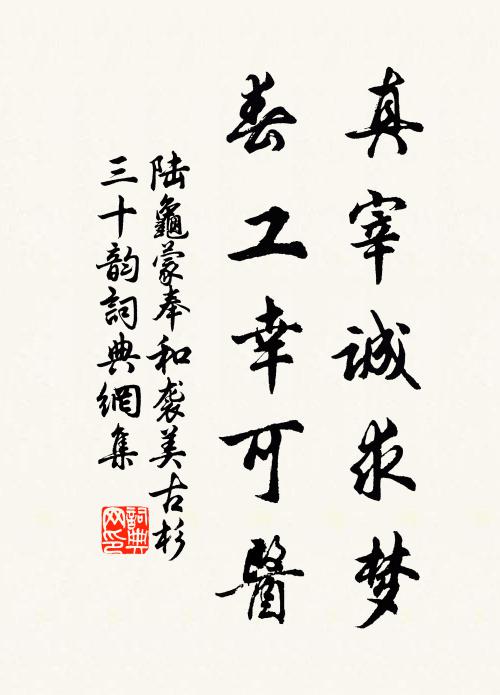 真宰誠求梦
春工幸可醫
陆龜蒙奉和袭美古杉
三十韵詞典網集
詞典网印